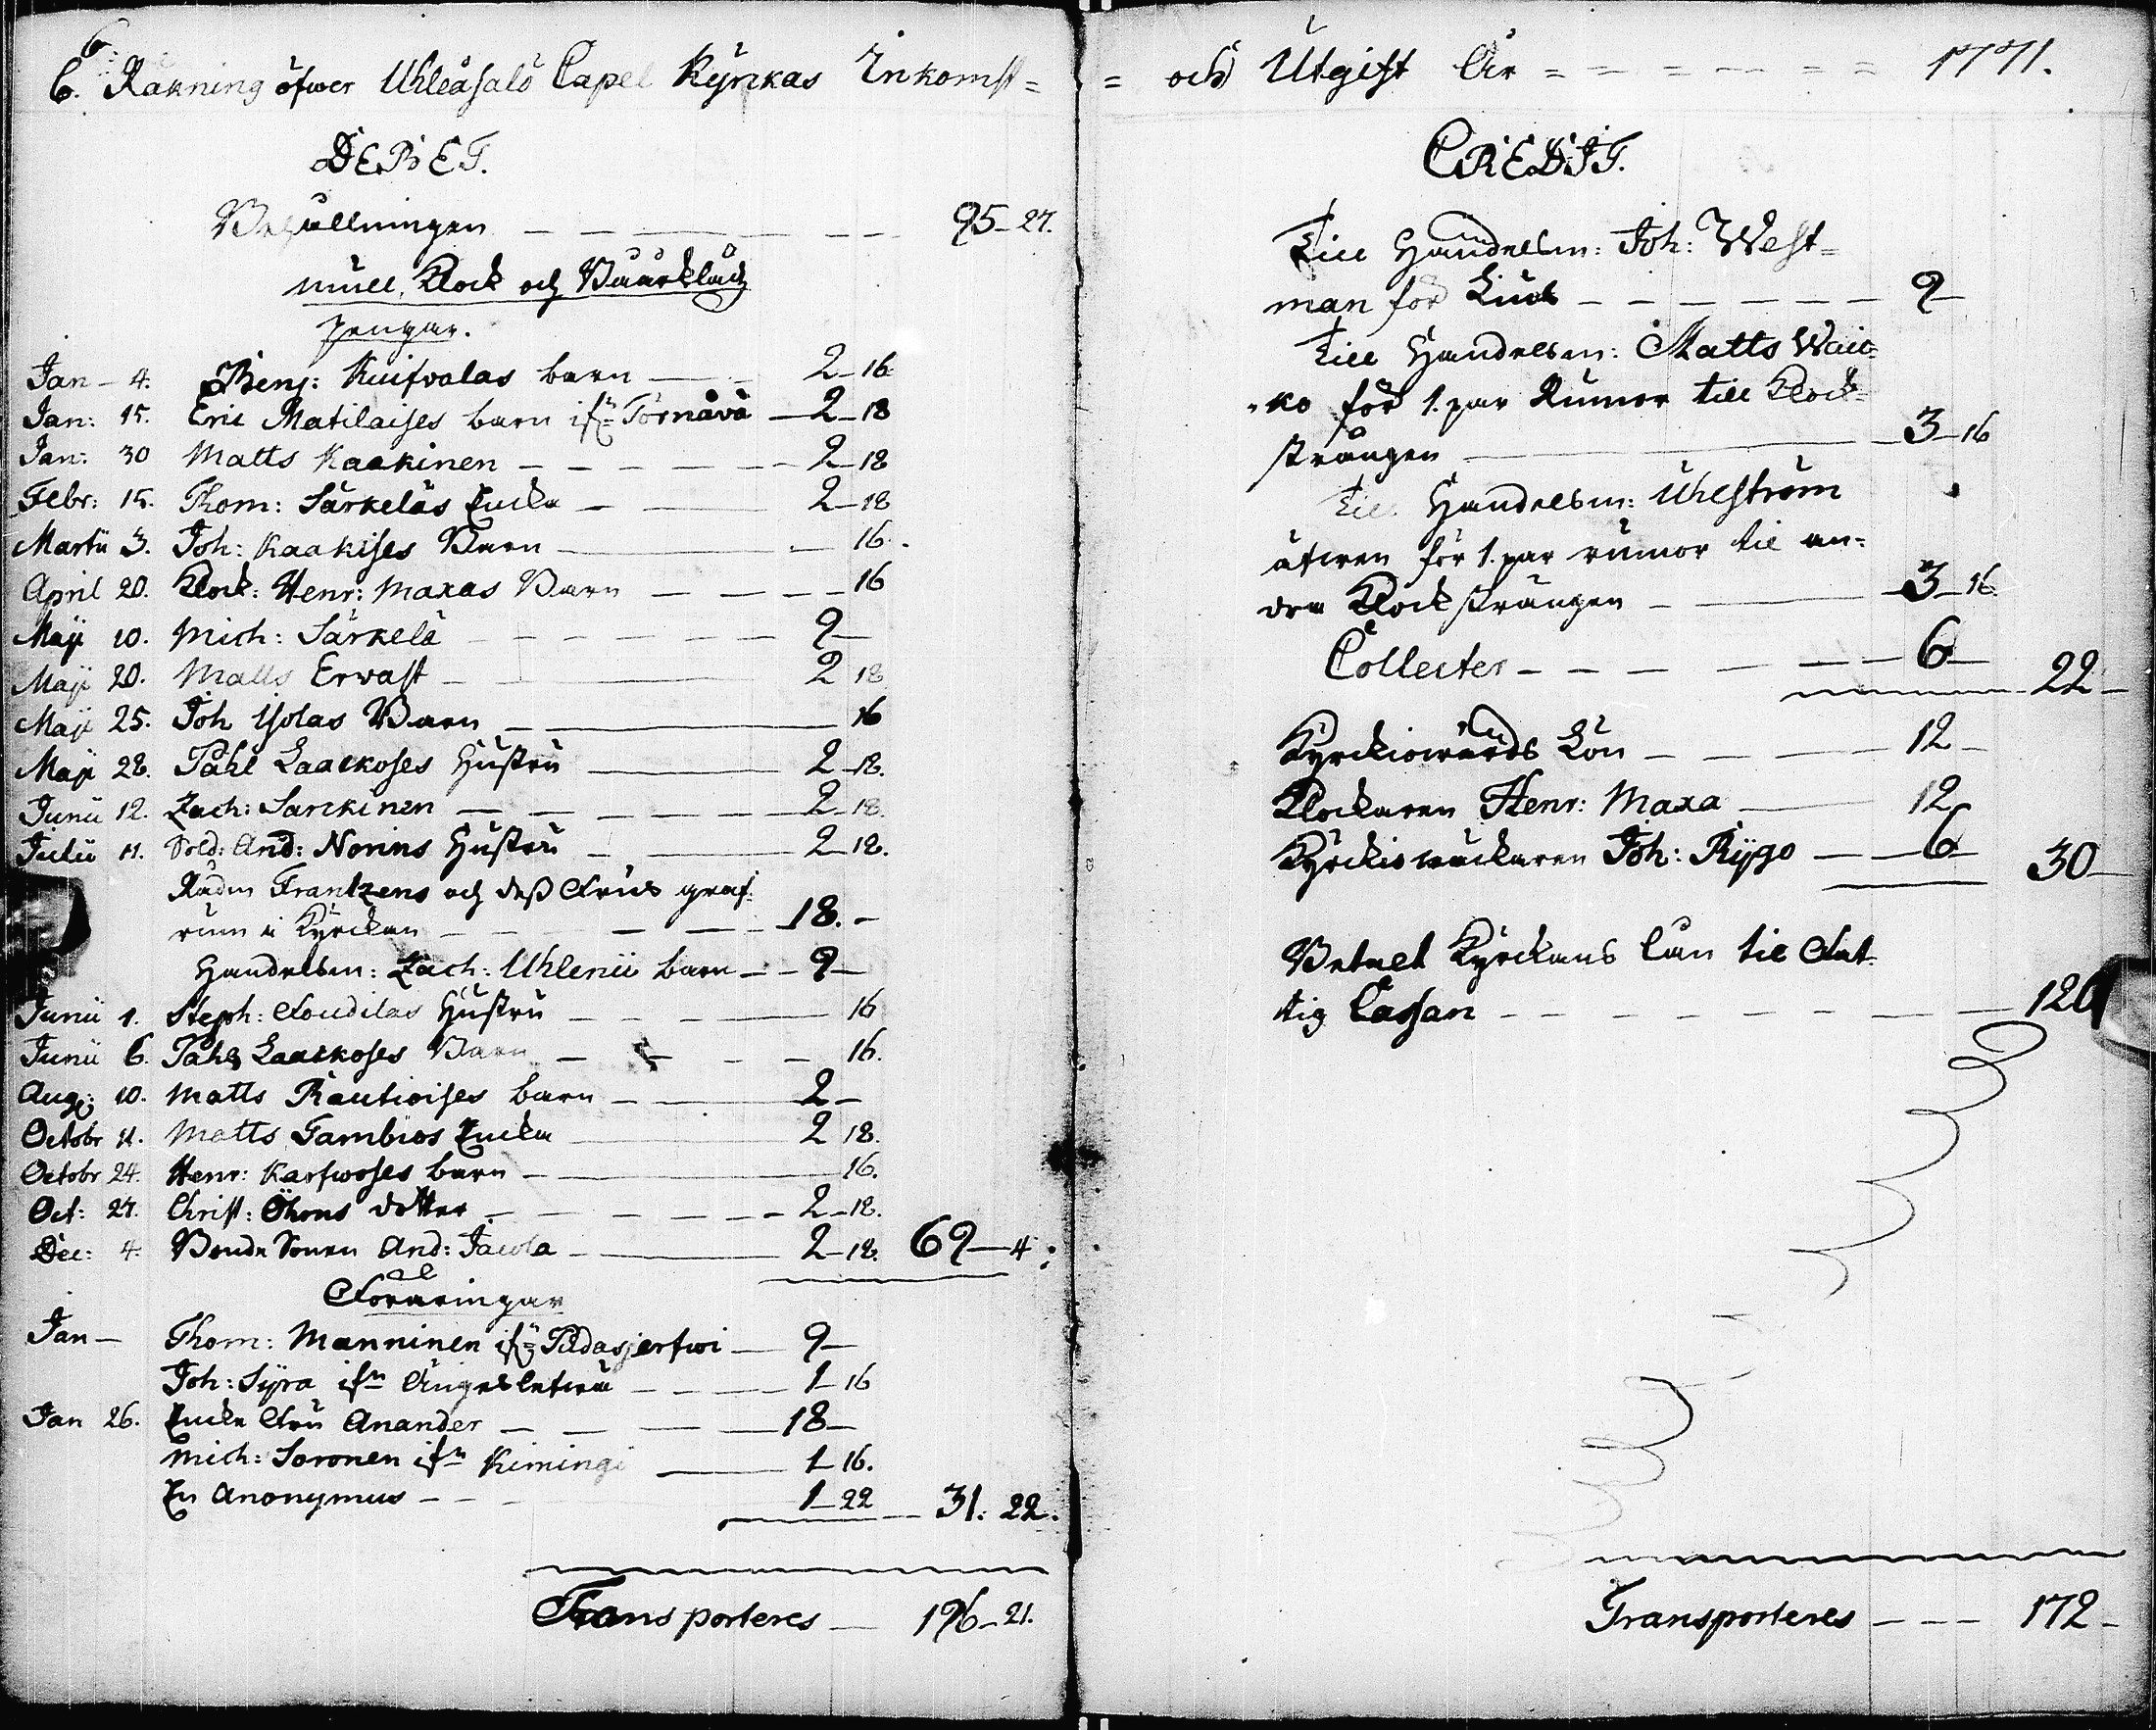 6.
6. Räkning öfwer Uhleåsalo Capel Kyrckas Inkomst=
DEBET.
Behållningen — — — — — 95–27.
mull, Klock och Båårkläds
pengar.
Jan – 4. Benj: Kuifvalas barn — 2–16
Jan: 15. Eric Matilaises barn ifn Törnävä — 2–18
Jan: 30 Matts Kaakinen — — — — 2–18
Febr: 15. Thom: Särkeläs Encka — 2–18
Martii 3. Joh: Kaakises Barn — — 16.
April 20. Klock: Henr: Maxas Barn — — — 16
Maji 10. Mich: Särkelä — — — — 9–
Maji 20. Matts Erwast — — 2 18
Maji 25. Joh Ijolas Barn — — 16
Maji 28. Påhl Laackoses Hustru — 2–18.
Junii 12. Zach: Sarckinen — — — — 2–18.
Julii 11. Sold: And: Norins Hustru — 2 18.
Rådm Frantzens och dess Frus graf-
rum i Kyrckan — — — — 18. –
Handelsm: Zach: Uhlenii barn — 9–
Junii 1. Steph: Foudilas Hustru — — 16
Junii 6. Påhl Laackoses Barn — — — 16.
Aug: 10. Matts Rautioises barn — 2–
Octobr 11. Matts Tambios Encka — 2 18.
Octobr 24. Henr: Karfwoses barn — 16.
Oct: 27. Christ: Öhons dotter — — — 2–18.
Dec: 4. Bonde Sonen And: Jacola — 2–18. 69–4.
Föräringar
Jan — Thom: Manninen ifn Pudasjerfwi — 9–
Joh: Syra ifn Ångeslefwa — — 1–16
Jan 26. Encke Fru Anander — — — 18–
Mich: Soronen ifn Kimingi — 1–16.
En Anonymus — — — 1–22 31: 22.
Transporteres — 196–21.
= och Utgift År = = = = = = 1771.
CREDIT.
Till Handelsm: Joh: West=
man för Liuus — — — — — 9–
Till Handelsm: Matts Wait=
ko för 1. par Rumor till Klock=
strängen — — 3–16
Till Handelsm: Uhlström
äfwen för 1. par rumor til an=
dra Klocksträngen — — 3–16.
Collecter — — — — — 6– 22–
Kyrckiowärds Lön — — — 12–
Klockaren Henr: Maxa — 12
Kyrckiowäckaren Joh: Rygo — — 6– 30–
Betalt Kyrckans lån til Fat=
tig Cassan — — — — — — 120
Transporteres — — — 172–